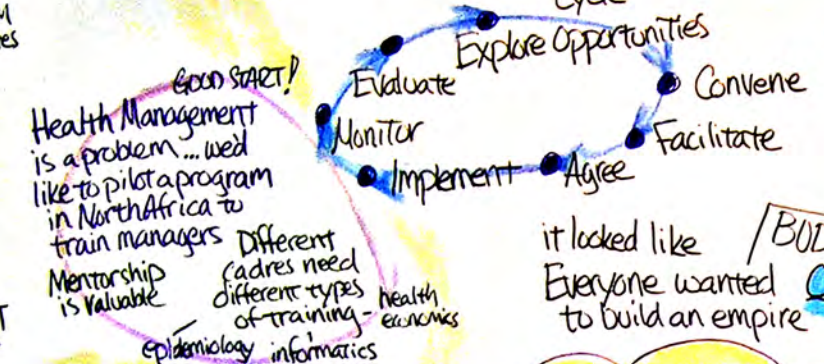 Cycle
Explore Opportunities
Evaluate
Convene
Monitor
Facilitate
Implement
Agree
GOOD START!
Health Management
is a problem... we'd
like to pilot a program
in North Africa to
train managers
Mentorship
is valuable
Different
cadres need
different types
of training-
health
economics
epidemiology
informatics
it looked like
Everyone wanted
to build an empire